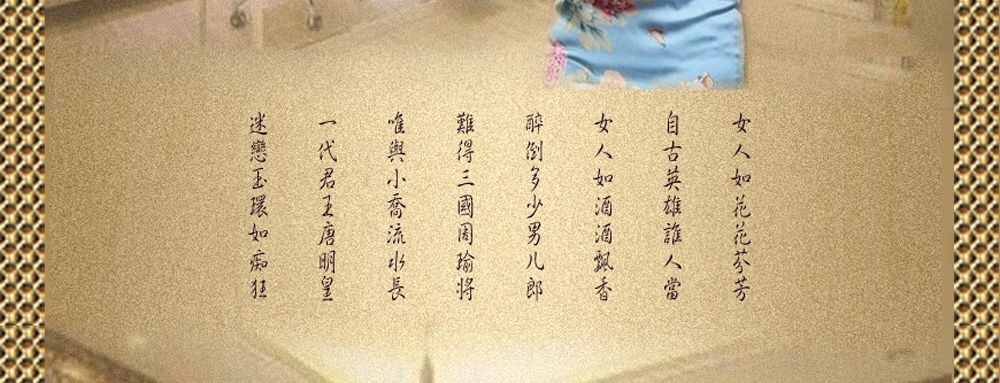 女人如花花芬芳
自古英雄誰人當
女人如酒酒飄香
醉倒多少男儿郎
難得三國周瑜將
唯與小喬流水長
一代君王唐明皇
迷戀玉環如痴狂